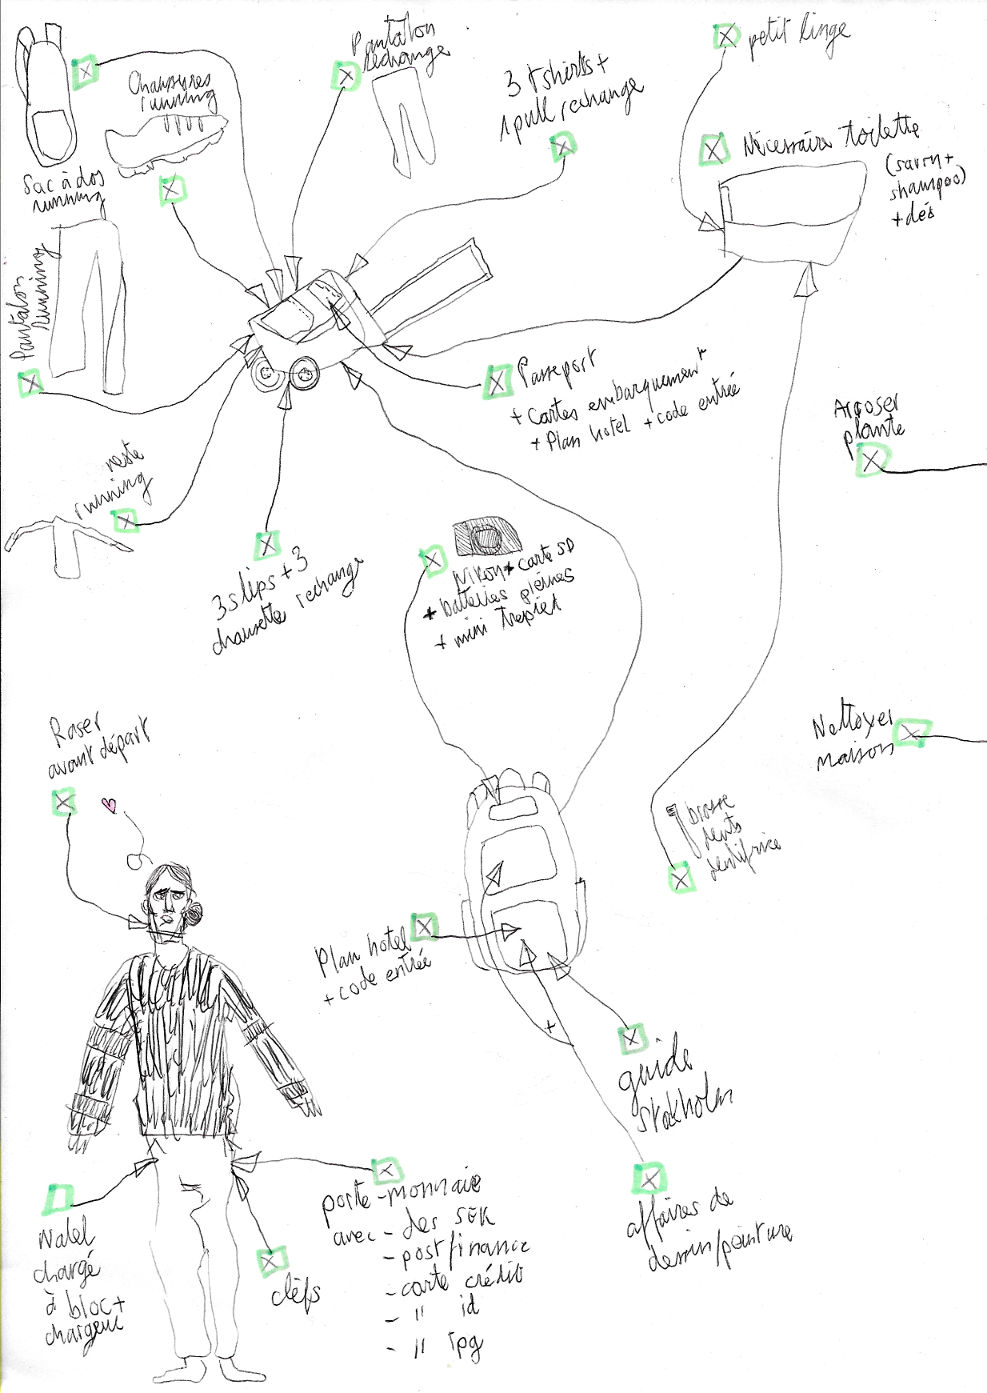 Chaussures
running
Sac à dos
running
Pantalon
rechange
3 tshirts +
1 pull rechange
petit linge
Nécessaire toilette
(savon +
shampoo)
+ déo
Pantalon
running
Passeport
+ Cartes embarquement
+ Plan hotel + code entrée
Arroser
plante
reste
running
3 slips + 3
chaussette rechange
Nikon + carte SD
+ batteries pleines
+ mini trepied
Raser
avant départ
Nettoyer
maison
brosse
dents
dentifrice
Plan hotel
+ code entrée
+
guide
Stokholm
affaires de
dessin/peinture
Natel
chargé
à bloc +
chargeur
clefs
porte-monnaie
avec - des SEK
- postfinance
- carte crédit
- " id
- " tpg